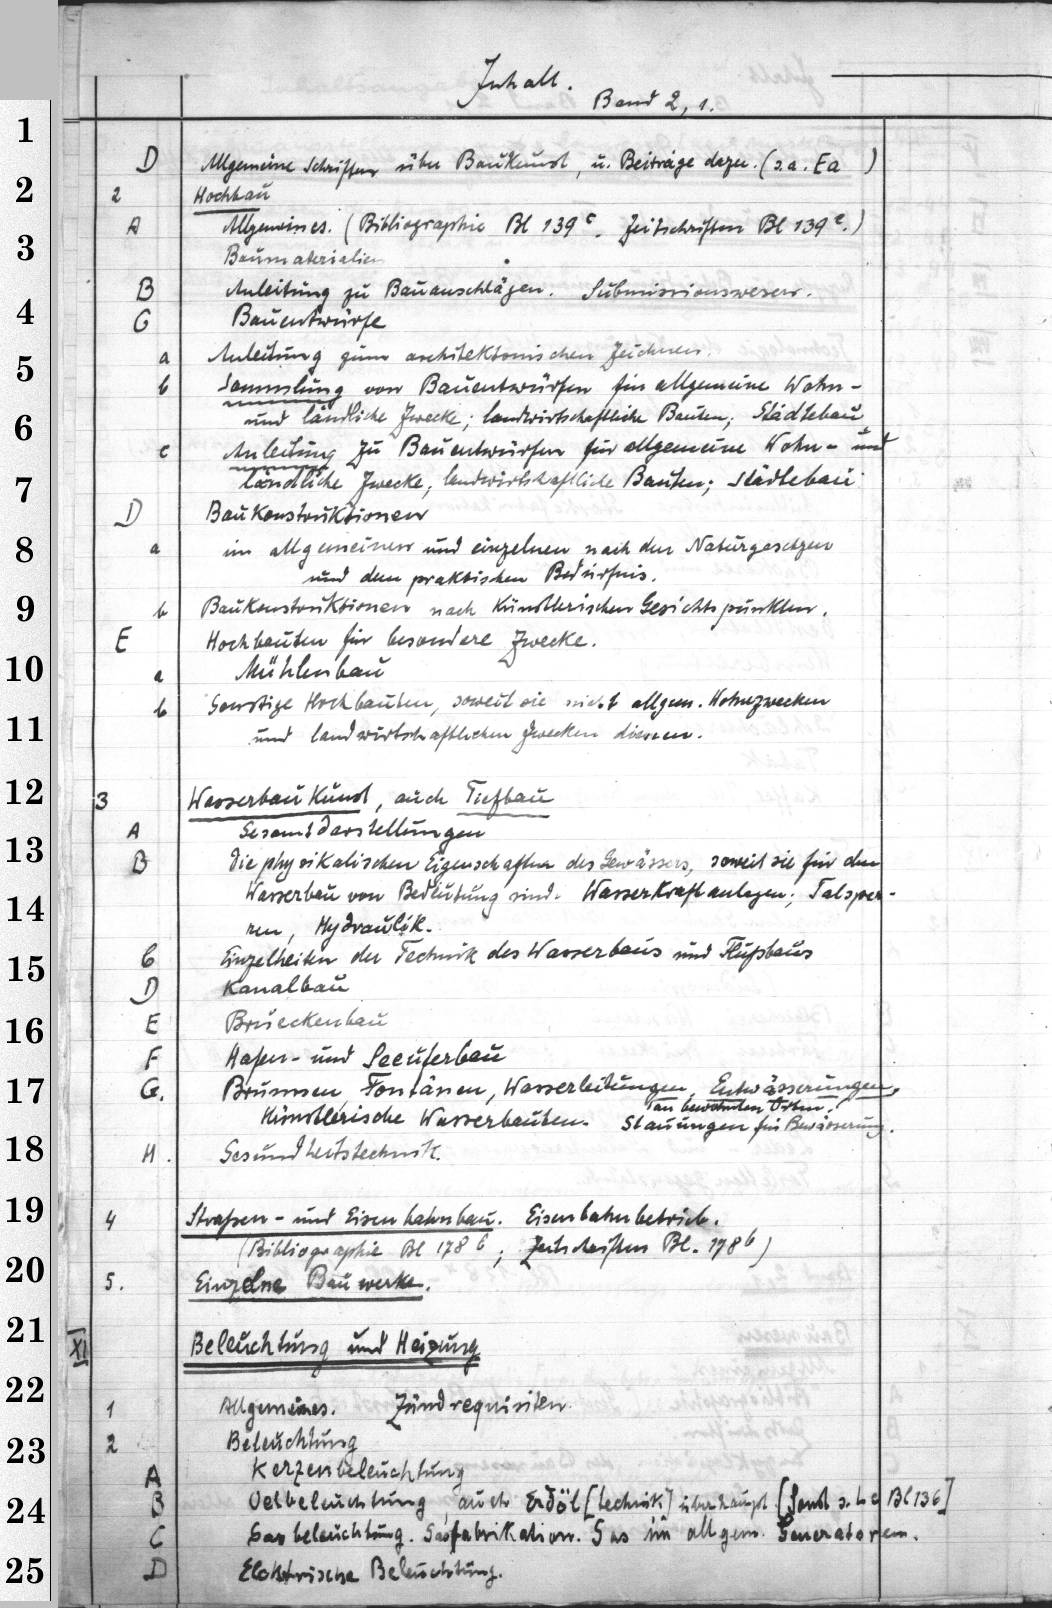 Inhalt.
Band 2, 1.
1
D Allgemeine Schriften über Baukunst, u. Beiträge dazu. (s. a. Ea )
2
2 Hochbau
A Allgemeines. (Bibliographie Bl 139 c. Zeitschriften Bl 139 c.)
3
Baumaterialien
B Anleitung zu Bauanschlägen. Submissionswesen.
4
C Bauentwürfe
a Anleitung zum architektonischen Zeichnen.
5
b Sammlung von Bauentwürfen für allgemeine Wohn-
und ländliche Zwecke; landwirtschaftliche Bauten; Städtebau
6
c Anleitung zu Bauentwürfen für allgemeine Wohn- und
ländliche Zwecke; landwirtschaftliche Bauten; Städtebau
7
D Baukonstruktionen
8
a im allgemeinen und einzelnen nach den Naturgesetzen
und dem praktischen Bedürfnis.
9
b Baukonstruktionen nach künstlerischen Gesichtspunkten.
E Hochbauten für besondere Zwecke.
10
a Mühlenbau
b Sonstige Hochbauten, soweit sie nicht allgem. Wohnzwecken
11
und landwirtschaftlichen Zwecken dienen.
12
3 Wasserbaukunst, auch Tiefbau
A Gesamtdarstellungen
13
B Die physikalischen Eigenschaften des Gewässers, soweit sie für den
Wasserbau von Bedeutung sind. Wasserkraftanlagen; Talsper-
14
ren, Hydraulik.
C Einzelheiten der Technik des Wasserbaus und Flußbaus
15
D Kanalbau
E Brueckenbau
16
F Hafen- und Seeuferbau
17
G. Brunnen, Fontänen, Wasserleitungen, Entwässerungen,
an bewohnten Orten.
Künstlerische Wasserbauten. Stauungen für Bewässerung.
18
H. Gesundheitstechnik.
19
4 Straßen- und Eisenbahnbau. Eisenbahnbetrieb.
(Bibliographie Bl 178 b; Zeitschriften Bl. 178 b)
20
5. Einzelne Bauwerke.
21
XI Beleuchtung und Heizung
22
1 Allgemeines. Zündrequisiten
23
2 Beleuchtung
A Kerzenbeleuchtung
24
B Oelbeleuchtung, auch Erdöl [technik] überhaupt [Sonst s. Bl 136]
C Gasbeleuchtung. Gasfabrikation. Gas im allgem. Generatoren.
25
D Elektrische Beleuchtung.